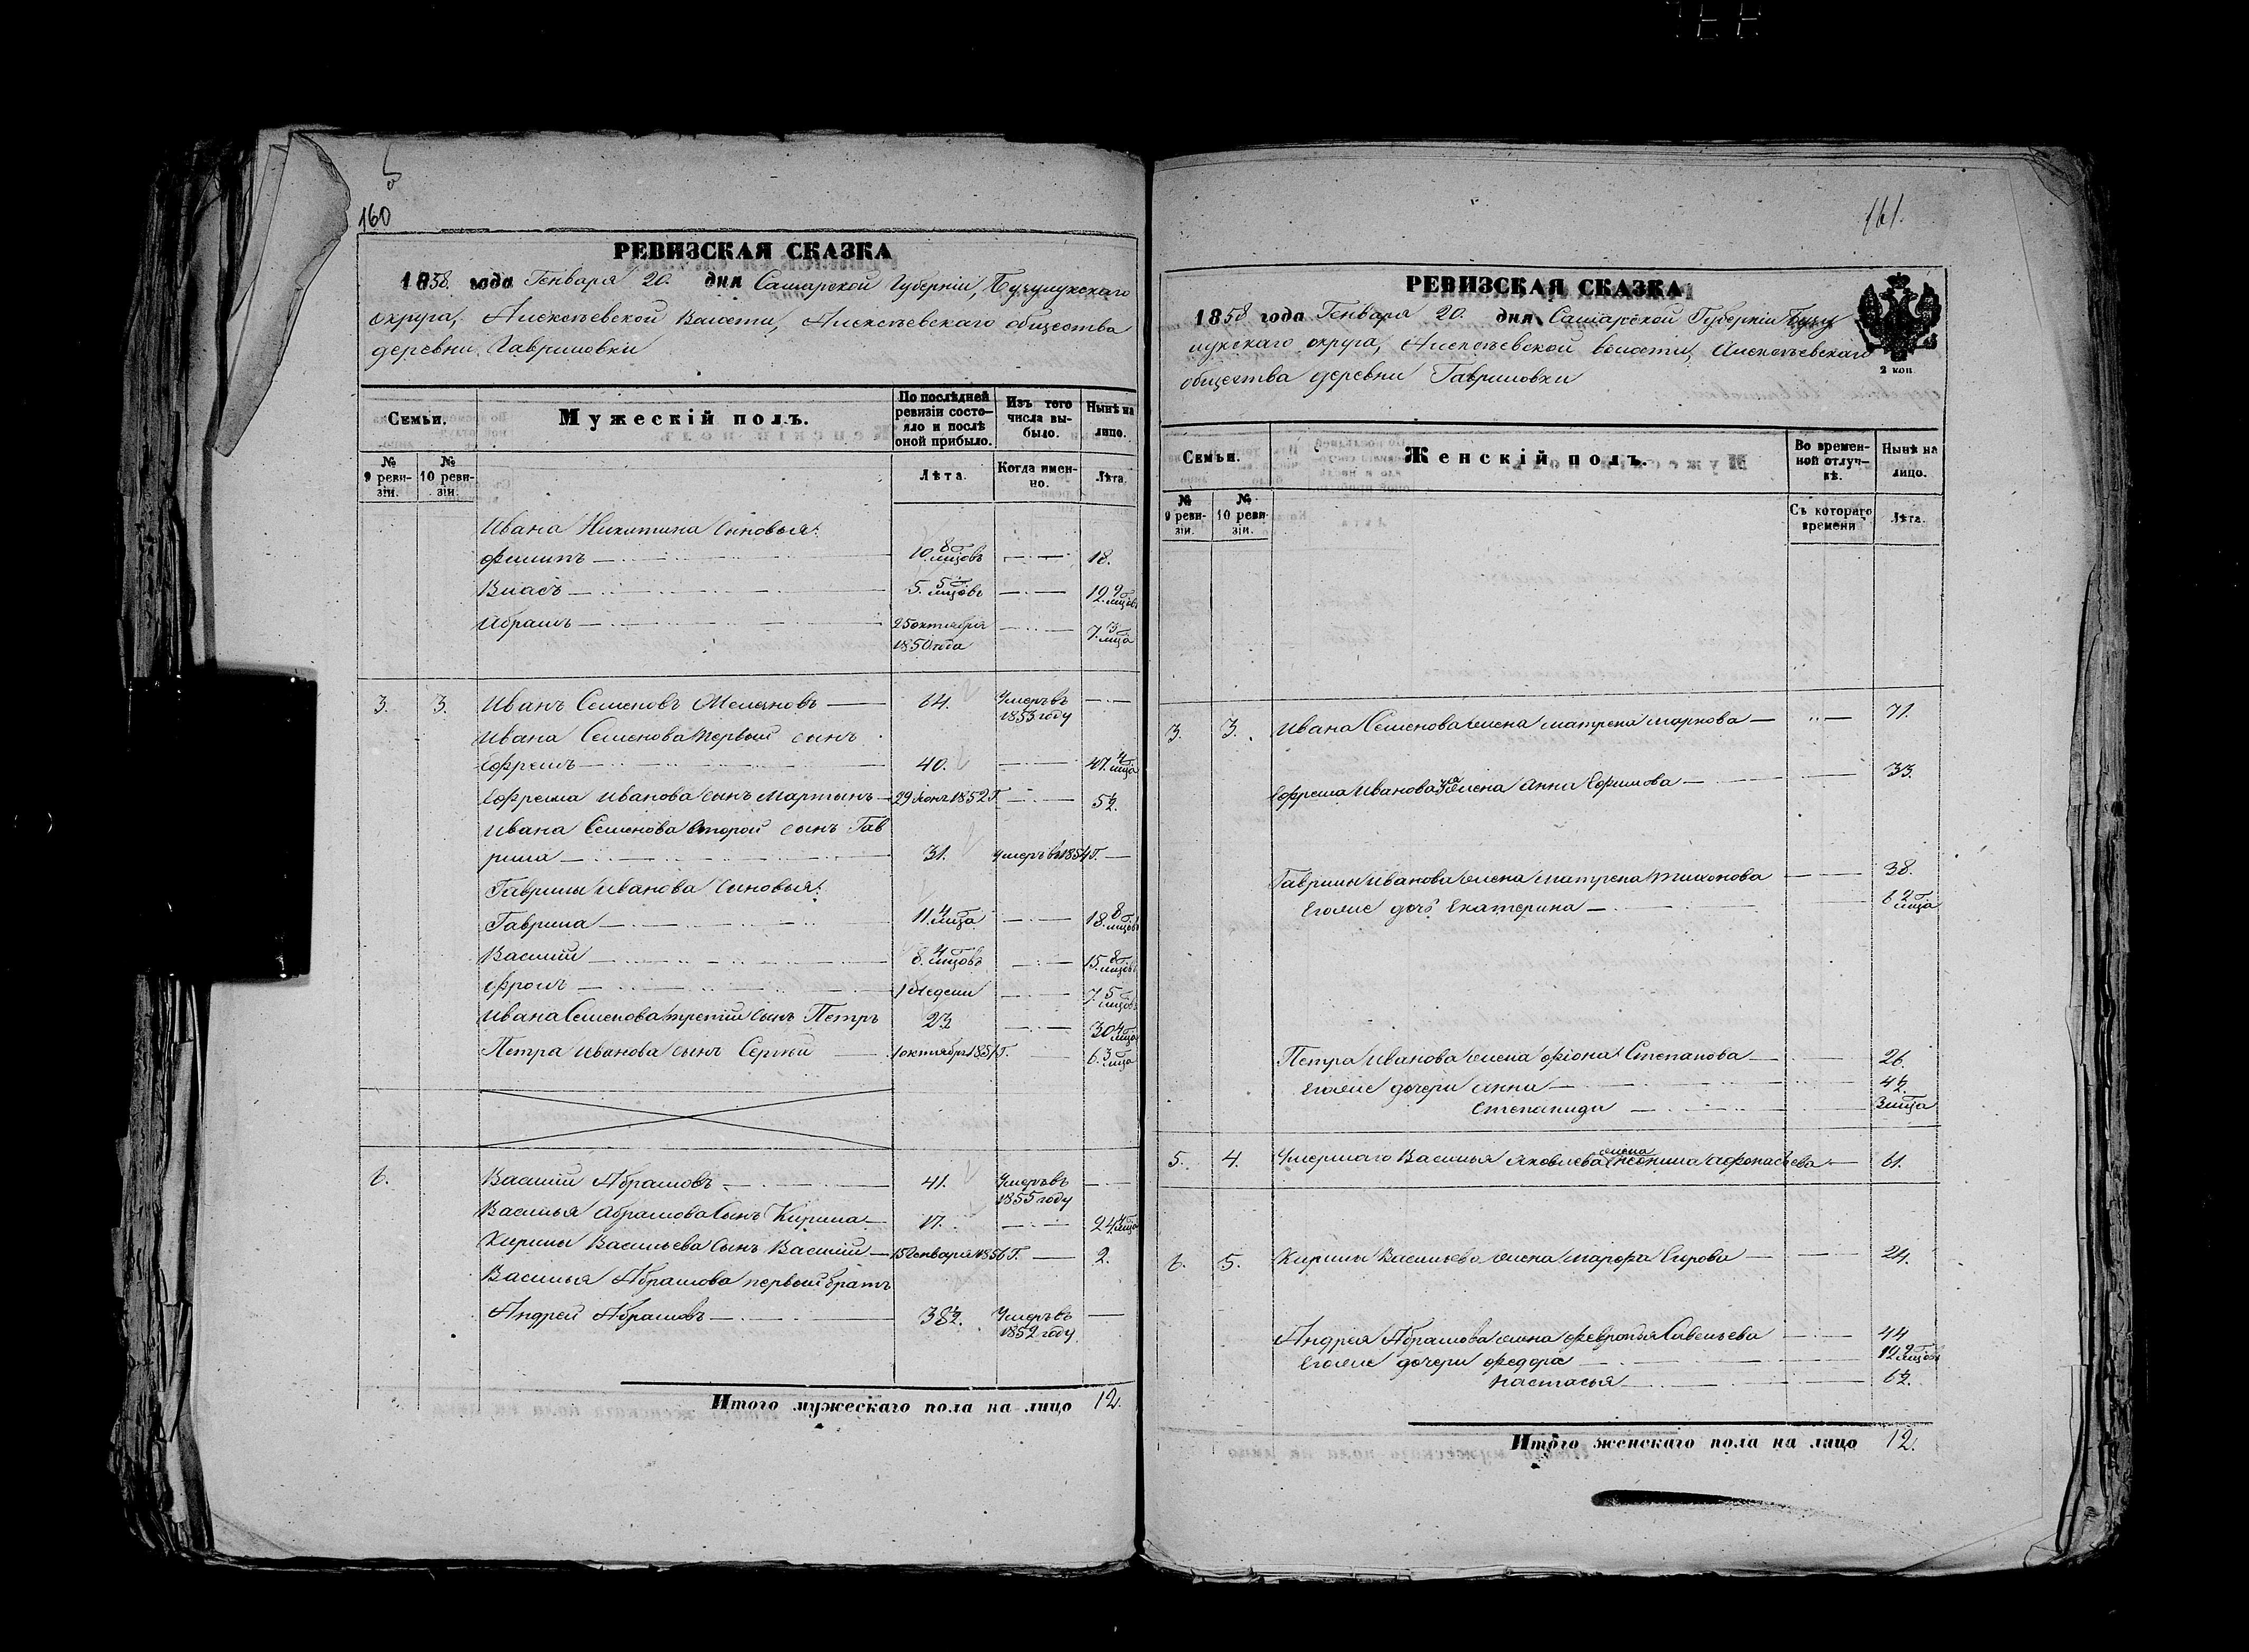 160
РЕВИЗСКАЯ СКАЗКА
1858. года Генваря 20. дня Самарской Губерніи, Бузулукскаго
округа, Алексѣевской Волости, Алексѣевскаго общества
деревни Гавриловки
Семьи.
Мужескій полъ.
По послѣдней ревизіи состояло и послѣ оной прибыло.
Изъ того числа выбыло.
Нынѣ на лицо.
№ 9 ревизіи.
№ 10 ревизіи.
Лѣта.
Когда именно.
Лѣта.
Ивана Никитина сыновья:
Филипъ — 10. 8/мцовъ — 18.
Власъ — 5. 5/мцовъ — 12. 9/мцовъ
Абрамъ — 25 октября 1850 года — 7. 3/мца
3. 3. Иванъ Семеновъ — 64. Умеръ въ 1853 году —
Ивана Семенова первый сынъ
Ефремъ — 40. — 47. 4/мца
Ефрема Иванова сынъ Мартынъ — 29 1852 Г. — 5½.
Ивана Семенова второй сынъ Гав
рила — 31. Умеръ въ 1854 Г. —
Гаврилы Иванова сыновья:
Гаврила — 11. 4/мца — 18. 8/мцовъ
Василій — 8. 4/мцовъ — 15. 8/мцовъ
Фролъ — 1 недели — 7. 5/мцовъ
Ивана Семенова третій сынъ Петръ 23 — 30 4/мца
Петра Иванова сынъ Сергѣй — 1 октября 1851 Г. — 6. 3/мца
6. Василій Абрамовъ — 41. Умеръ въ 1855 году —
Василья Абрамова сынъ Кирила — 17. — 24 4/мца
Кирилы Васильева сынъ Василій — 15 Генваря 1856 Г. — 2.
Василья Абрамова первый братъ
Андрей Абрамовъ — 38½. Умеръ въ 1852 году. —
Итого мужескаго пола на лицо 12.
161.
РЕВИЗСКАЯ СКАЗКА
1858 года Генваря 20. дня Самарской Губерніи Бузу
лукскаго округа, Алексѣевской волости, Алексѣевскаго
общества деревни Гавриловки
2 коп
Семьи.
Женскій полъ.
Во временной отлучкѣ.
Нынѣ на лицо.
№ 9 ревизіи.
№ 10 ревизіи.
Съ котораго времени
Лѣта.
3. 3. Ивана Семенова жена Матрена Маркова — 71.
Ефрема Иванова жена Анна Ефимова — 33.
Гаврилы Иванова жена Матрена Тихонова — 38.
Его же дочь Екатерина — 6 2/мца
Петра Иванова жена Фіона Степанова — 26.
Его же дочери Анна — 4½.
Степанида — 3 мца
5. 4. Умершаго Василья Яковлева жена Афонасьева — 61.
6. 5. Кирилы Васильева жена Марфа Егорова — 24.
Андрея Абрамова жена Февронья Савельева — 44
Его же дочери Федора — 12 9/мцовъ
Настасья — 6½.
Итого женскаго пола на лицо 12.